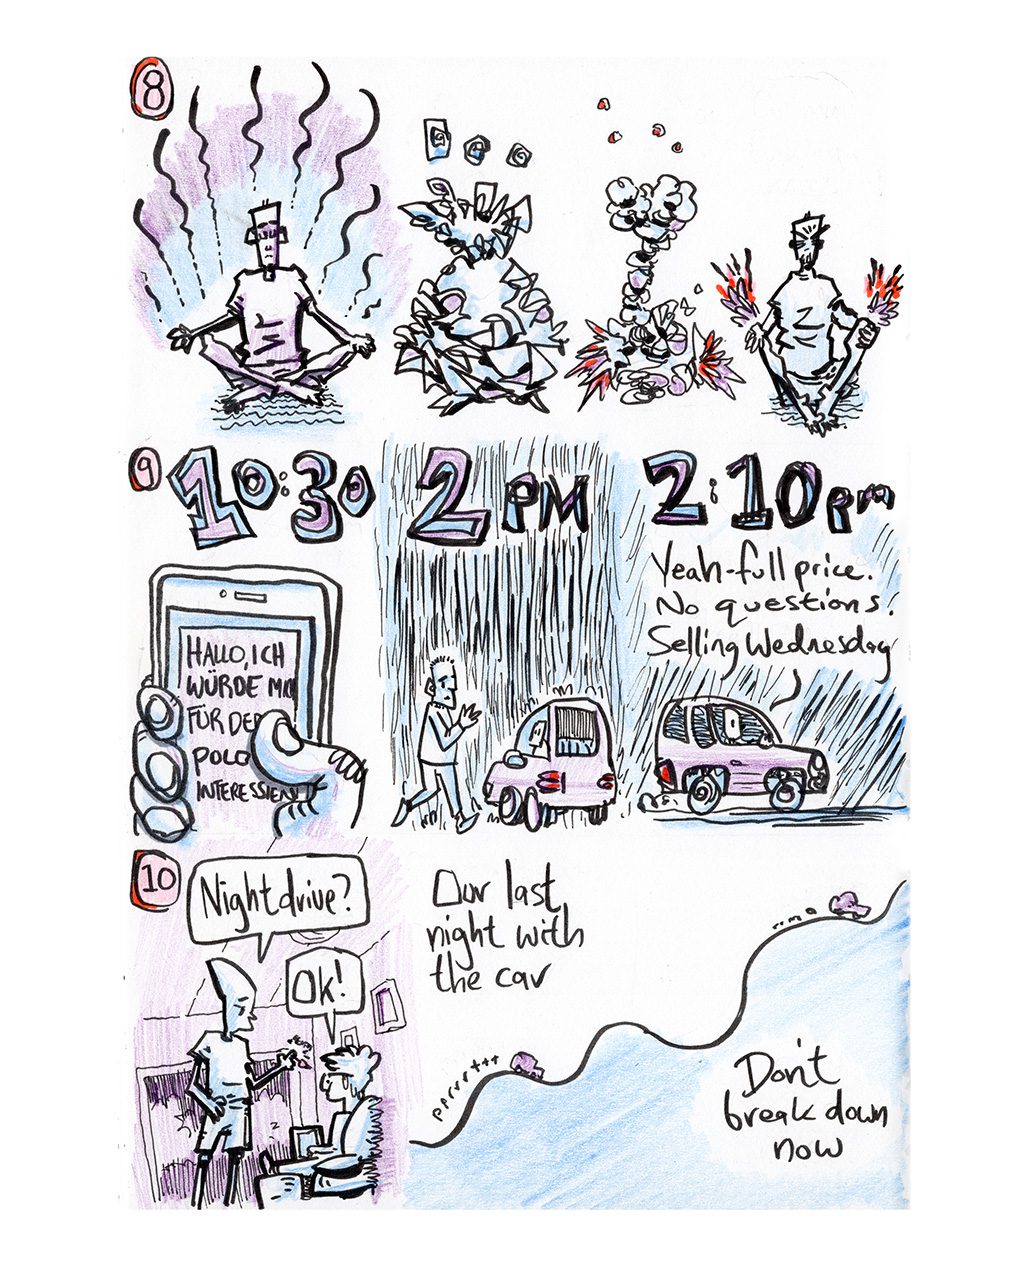 8
9
10:30
2 PM
2:10pm
HALLO, ICH
WÜRDE MI
FÜR DE
POLO
INTERESSIEN
Yeah-full price.
No questions.
Selling Wednesday
10
Nightdrive?
Ok!
Our last
night with
the car
pprrrttt
Don't
break down
now